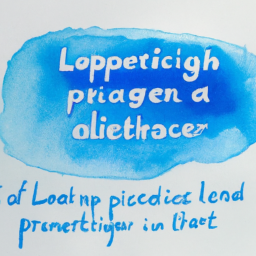 Loppericigh
priagen a
aliethacez
of Loat np picedicz lend
prcmettijyar in lhaet